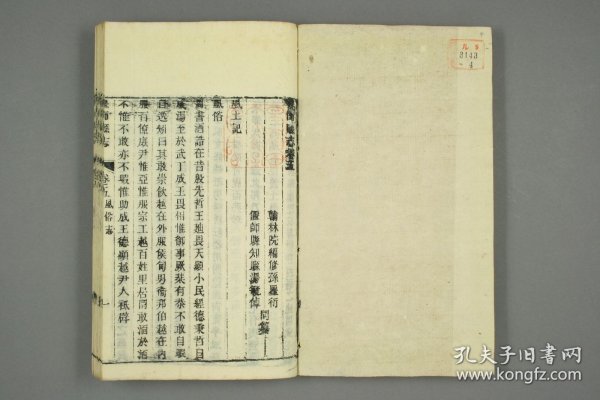 偃師縣志卷五
翰林院編修孫星衍
偃師縣知縣湯毓倬 同纂
風土記
風俗
尚書酒誥在昔殷先哲王廸畏天顯小民經德秉哲自
成湯至於武丁成王畏相惟御事厥棐有恭不敢自暇
自逸矧曰其敢崇飲越在外服侯甸男衞邦伯越在内
服百僚庶尹惟亞惟服宗工越百姓里居罔敢湎於酒
不惟不敢亦不暇惟助成王德顯越尹人祗辟
偃師縣志 卷五風俗志 一
3143
4
孔夫子旧书网
www.kongfz.com